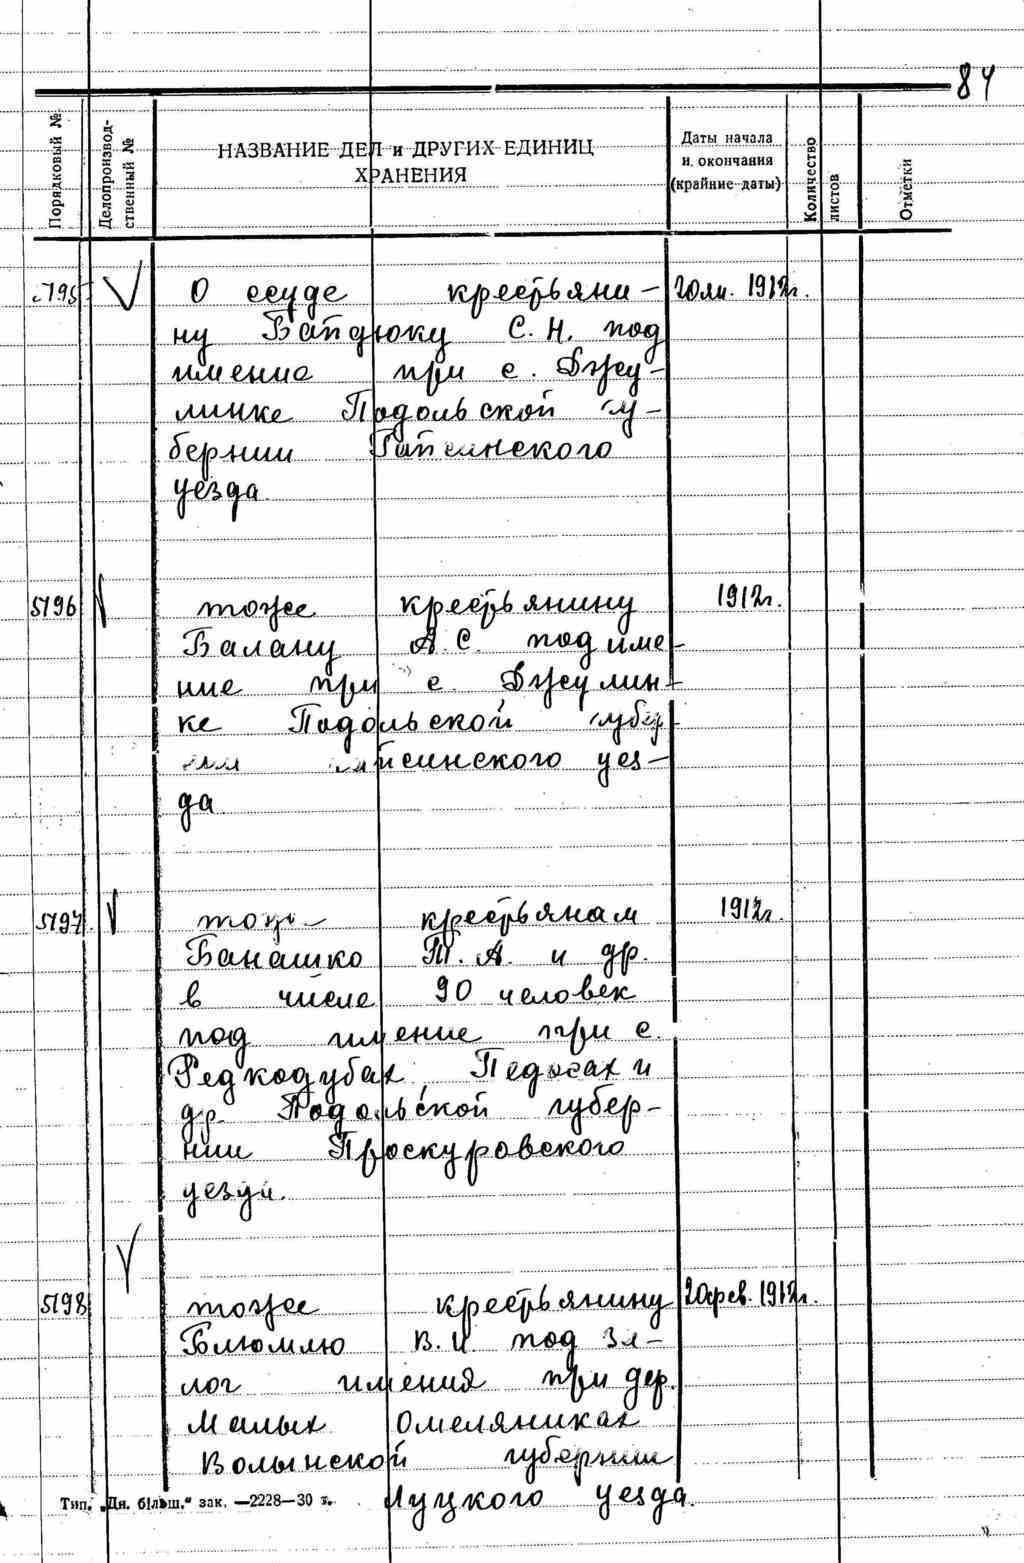 84
Порядковый №
Делопроизвод-
ственный №
НАЗВАНИЕ ДЕЛ и ДРУГИХ ЕДИНИЦ
ХРАНЕНИЯ
Даты начала
и окончания
(крайние даты)
Количество
листов
Отметки
5195 О ссуде крестьяни-
ну Байдюку С. Н. под
имение при с. Джу-
линке Подольской гу-
бернии Гайсинского
уезда.
5196 тоже крестьянину 1912г.
Балану А.С. под име-
ние при с. Джулин-
ке Подольской губер
нии Гайсинского уез-
да
5197 тоже крестьянам 1912г.
Банашко Т. А. и др.
в числе 90 человек
под имение при с.
Редкодубах, Педосах и
др. Подольской губер-
нии Проскуровского
уезда.
5198 тоже крестьянину 20фев. 1912г.
Блюмлю В. И под за-
лог имения при дер.
Малых Омеляниках
Волынской губернии
Луцкого уезда.
Тип. „Дн. більш." зак. —2228—30 т.